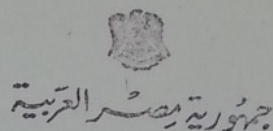 جمهورية مصر العربية